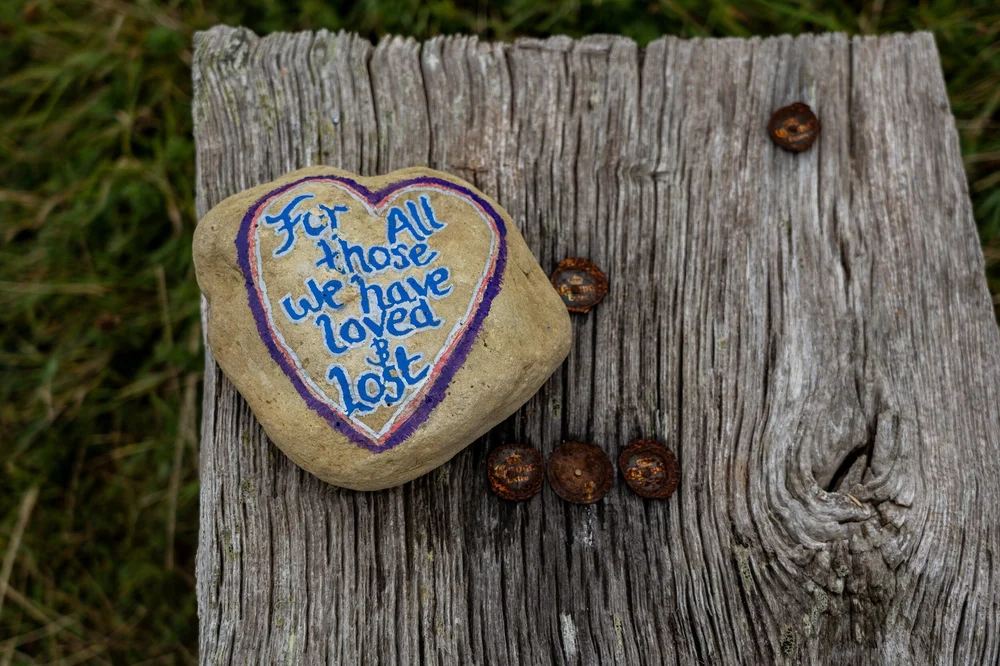 For All
those
we have
loved
&
lost